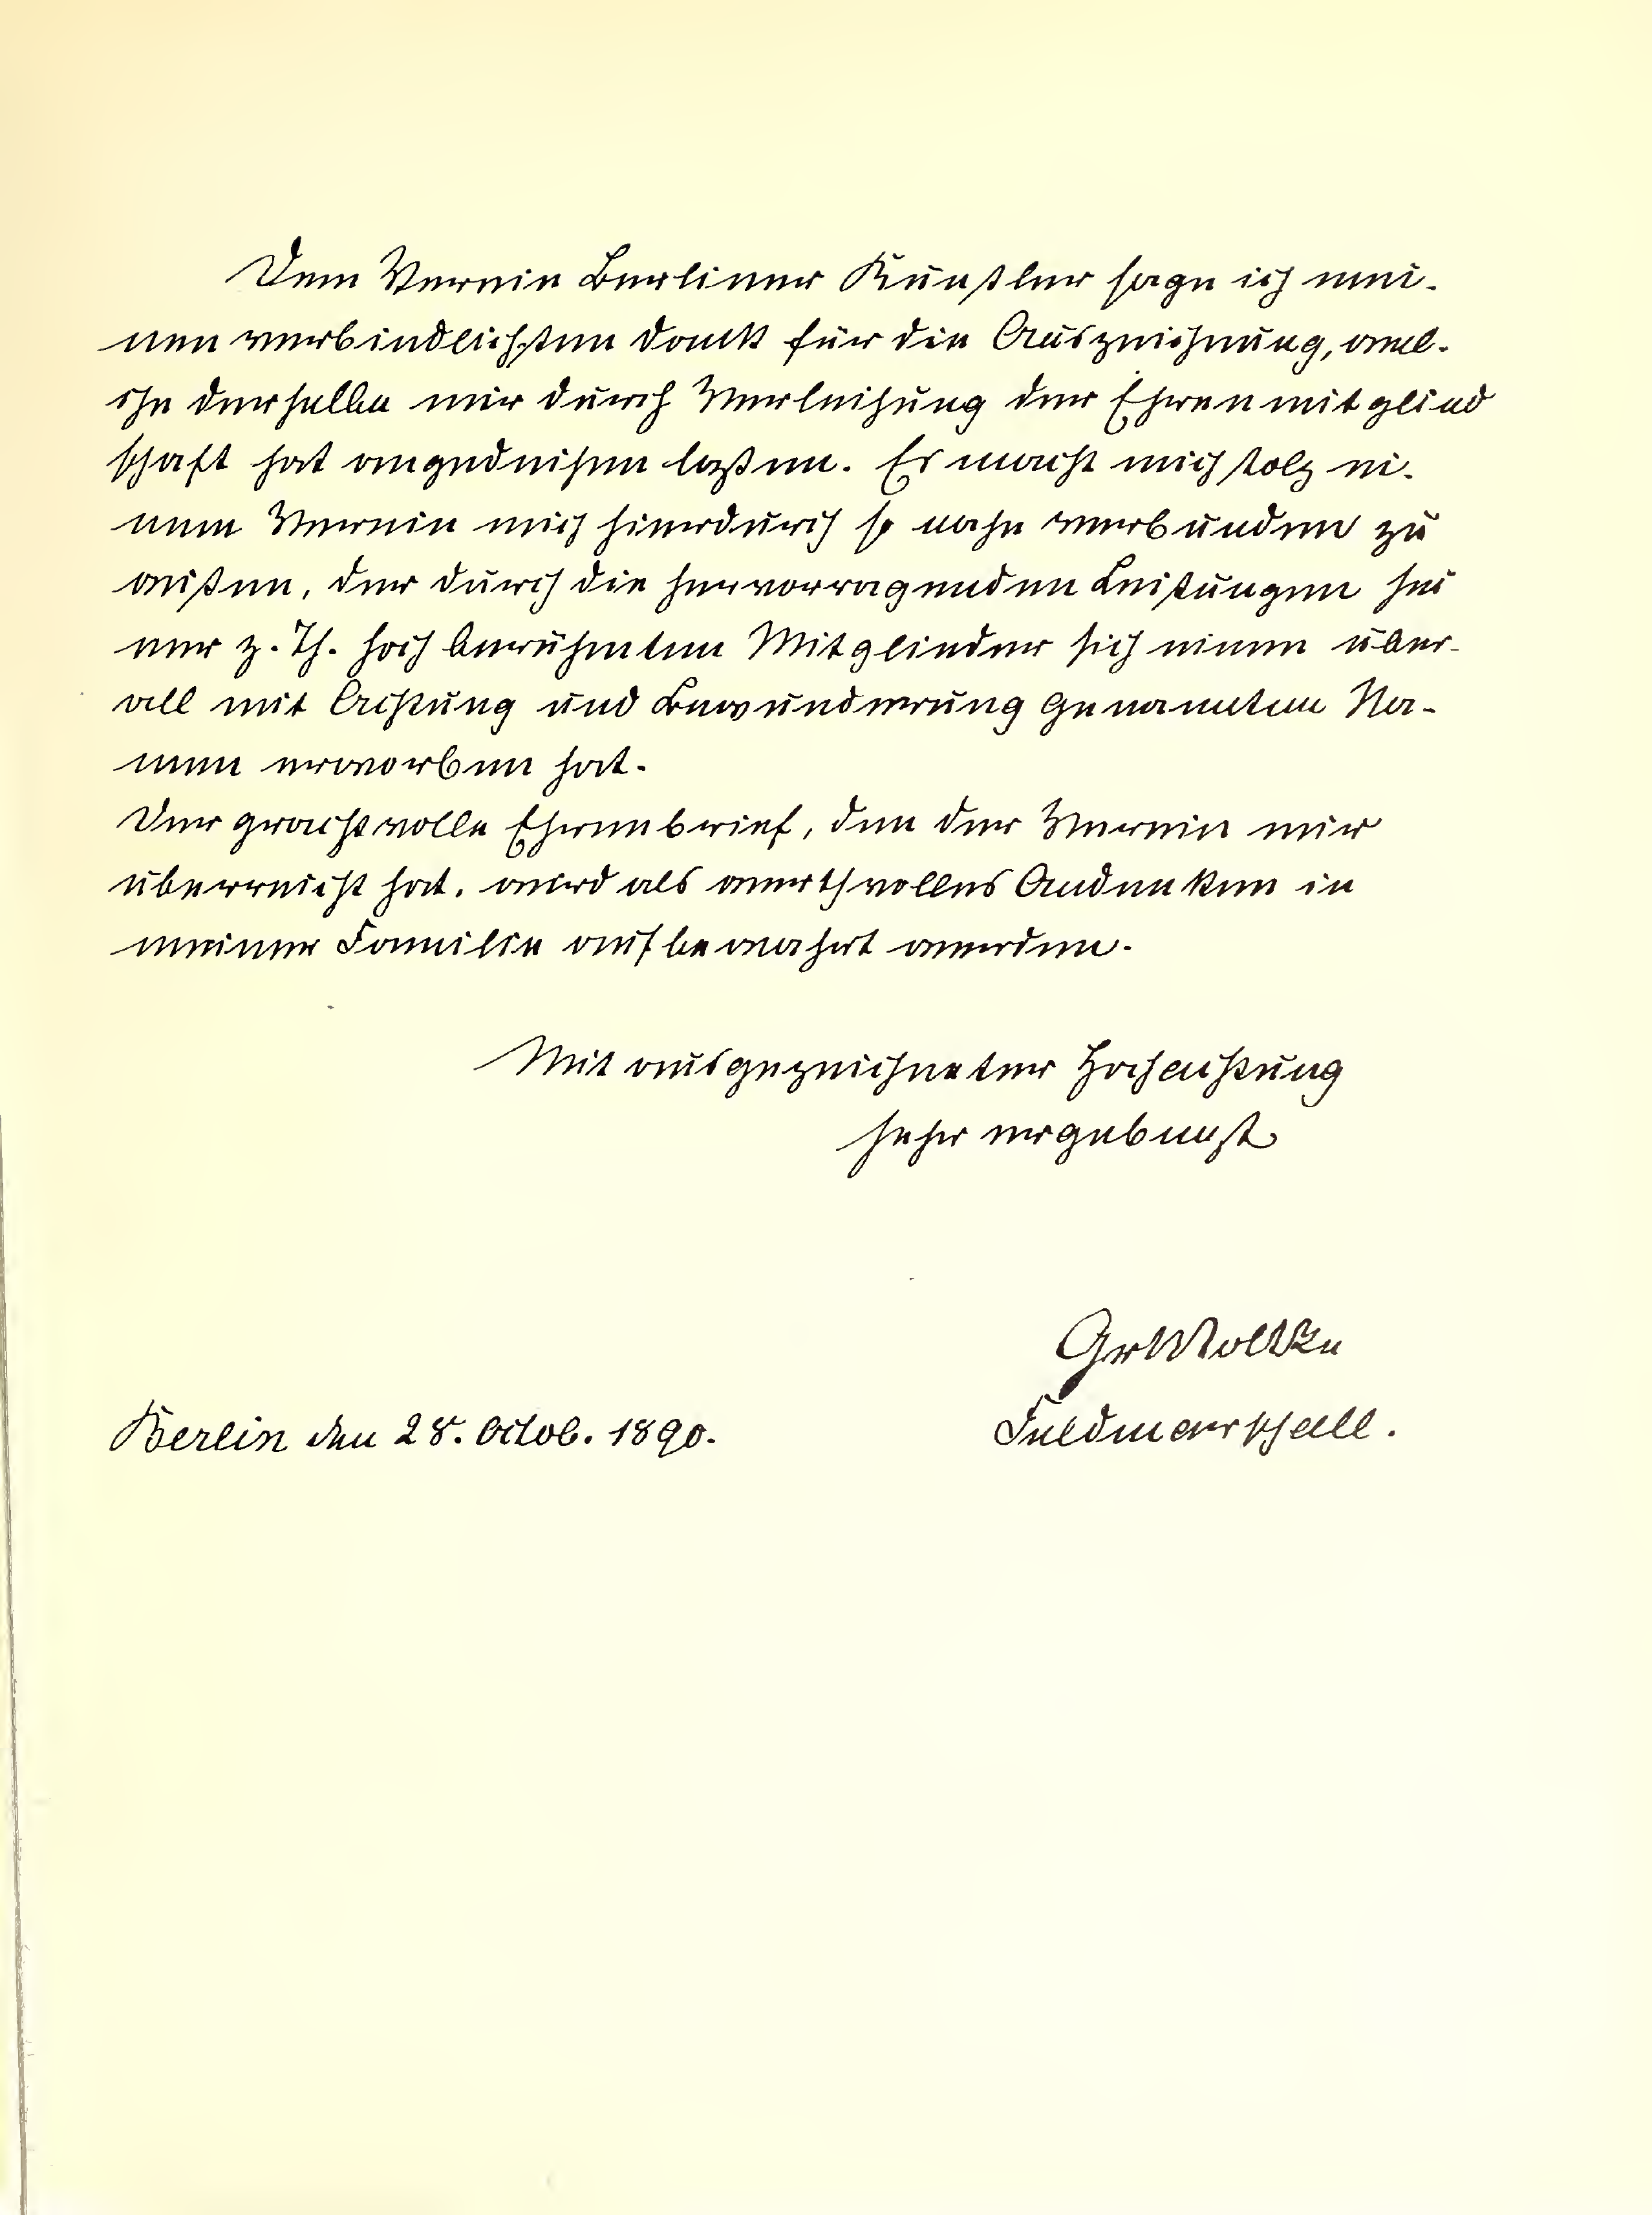 Dem Verein Berliner Künstler sage ich mei-
nen verbindlichsten Dank für die Auszeichnung, wel-
che derselbe mir durch Verleihung der Ehrenmitglied
schaft hat angedeihen laßen. Es macht mich stolz ei-
nem Verein mich hierdurch so nahe verbunden zu
wißen, der durch die hervorragenden Leistungen sei
ner z. Th. hoch berühmten Mitglieder sich einen über-
all mit Achtung und Bewunderung genannten Na-
men erworben hat.
Der prachtvolle Ehrenbrief, den der Verein mir
überreicht hat, wird als werthvolles Andenken in
meiner Familie aufbewahrt werden.
Mit ausgezeichneter Hochachtung
sehr ergebenst
Gr Moltke
Feldmarschall.
Berlin den 28. Octob. 1890.